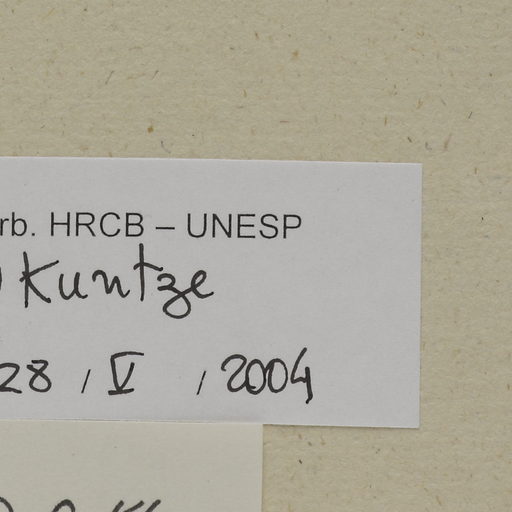 rb. HRCB – UNESP
) Kuntze
28 / V / 2004